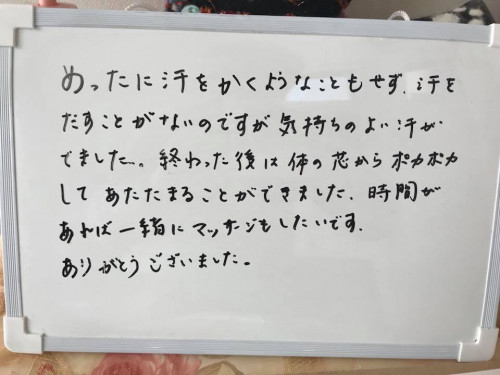 めったに汗をかくようなこともせず、汗を
だすことがないのですが気持ちのよい汗が
でました。終わった後は体の芯からポカポカ
してあたたまることができました。時間が
あれば一緒にマッサージもしたいです。
ありがとうございました。